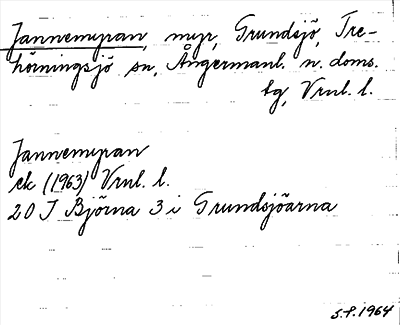 Jannemyran, myr, Grundsjö, Tre-
hörningsjö sn, Ångermanl. n. doms.
tg, Vrnl. l.
Jannemyran
ek (1963) Vrnl. l.
20 J Björna 3 i Grundsjöarna
S.P. 1964